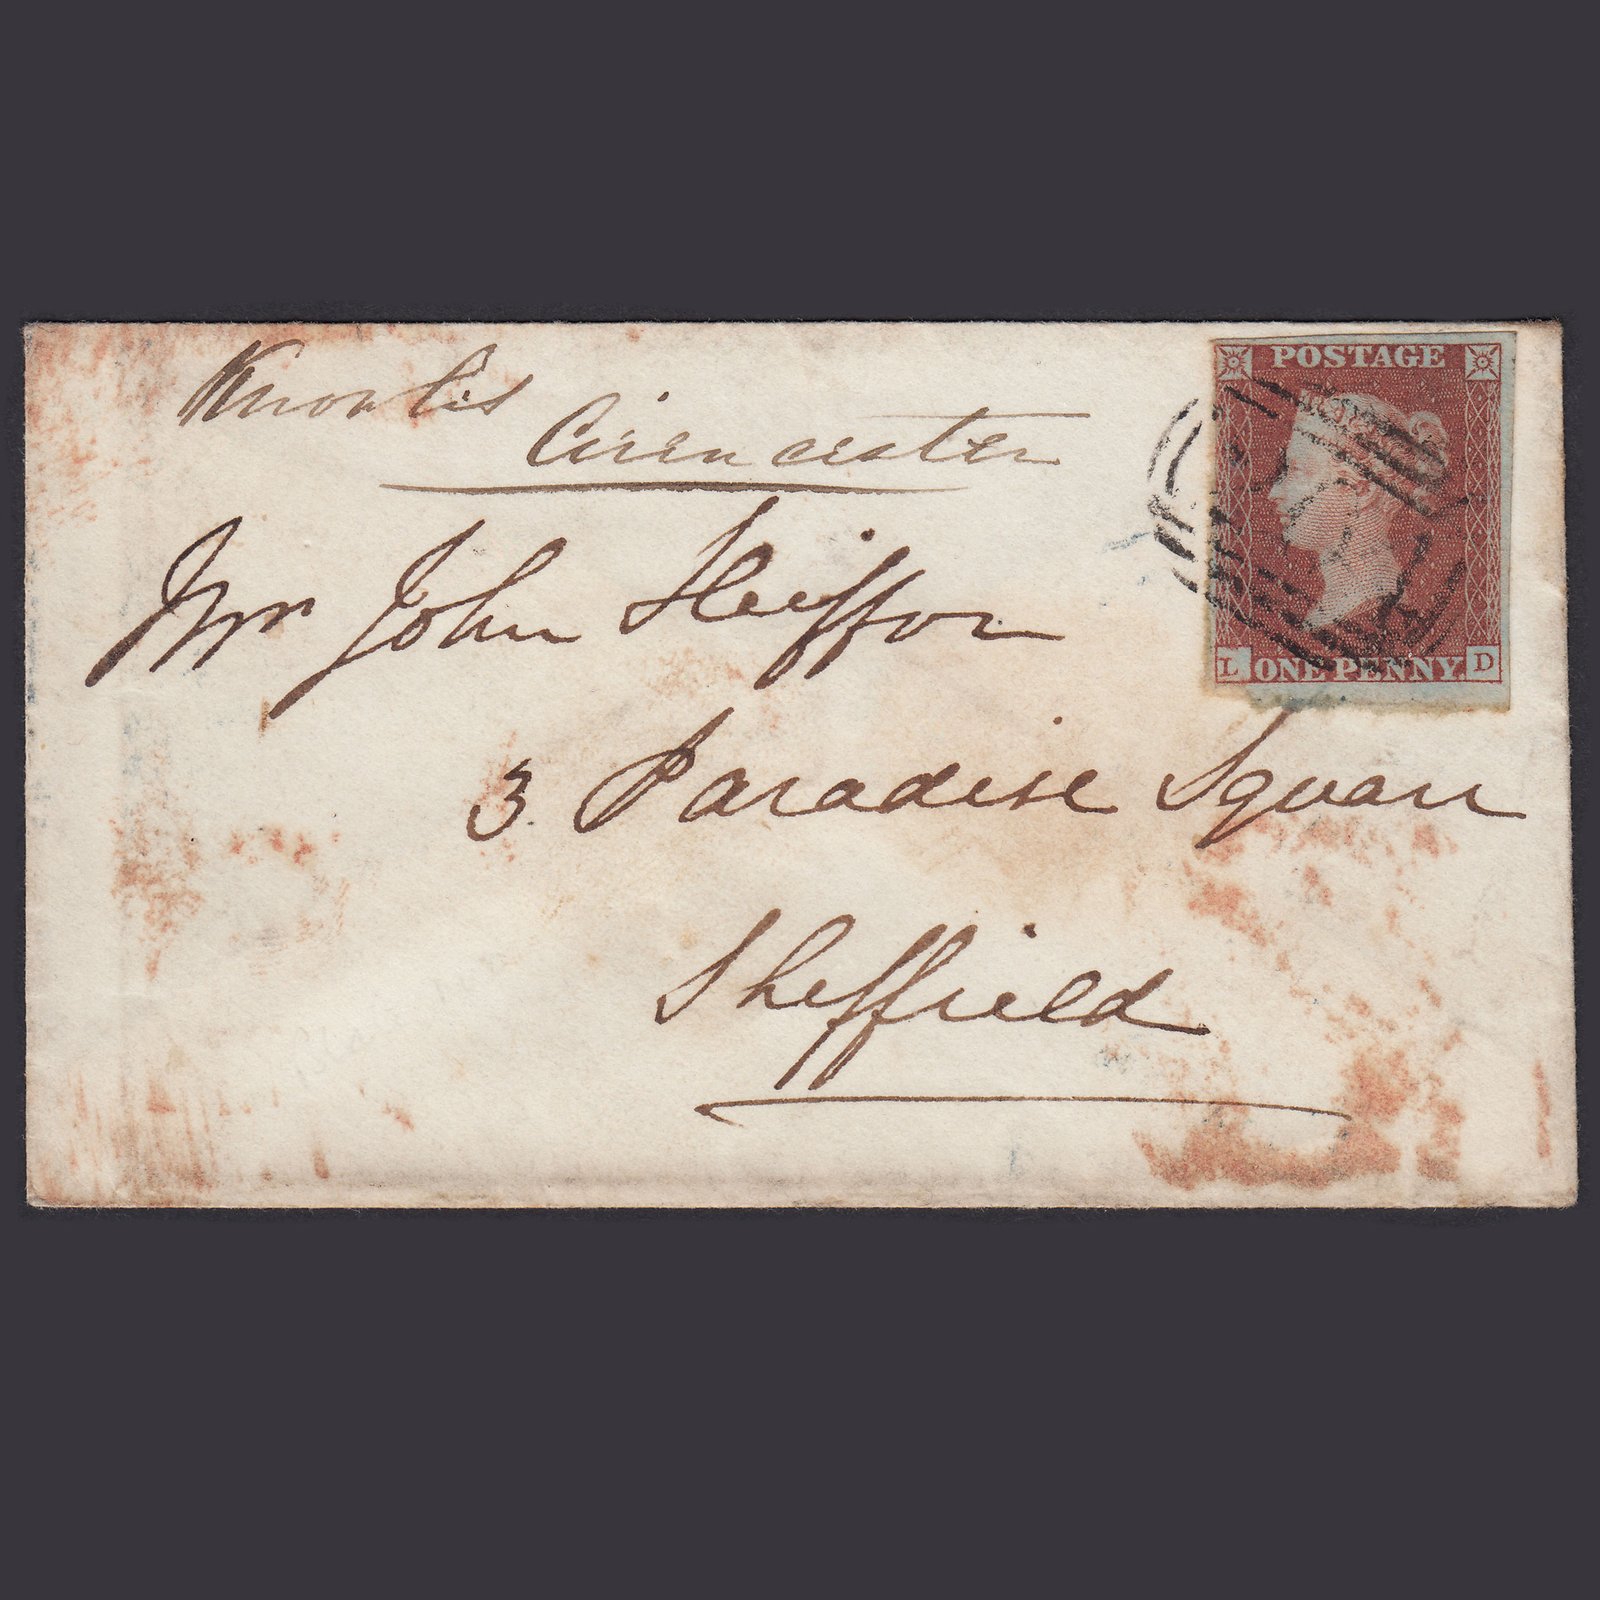 Cirencester
POSTAGE
Mr John Heiffor
L ONE PENNY. D
3 Paradise Square
Sheffield